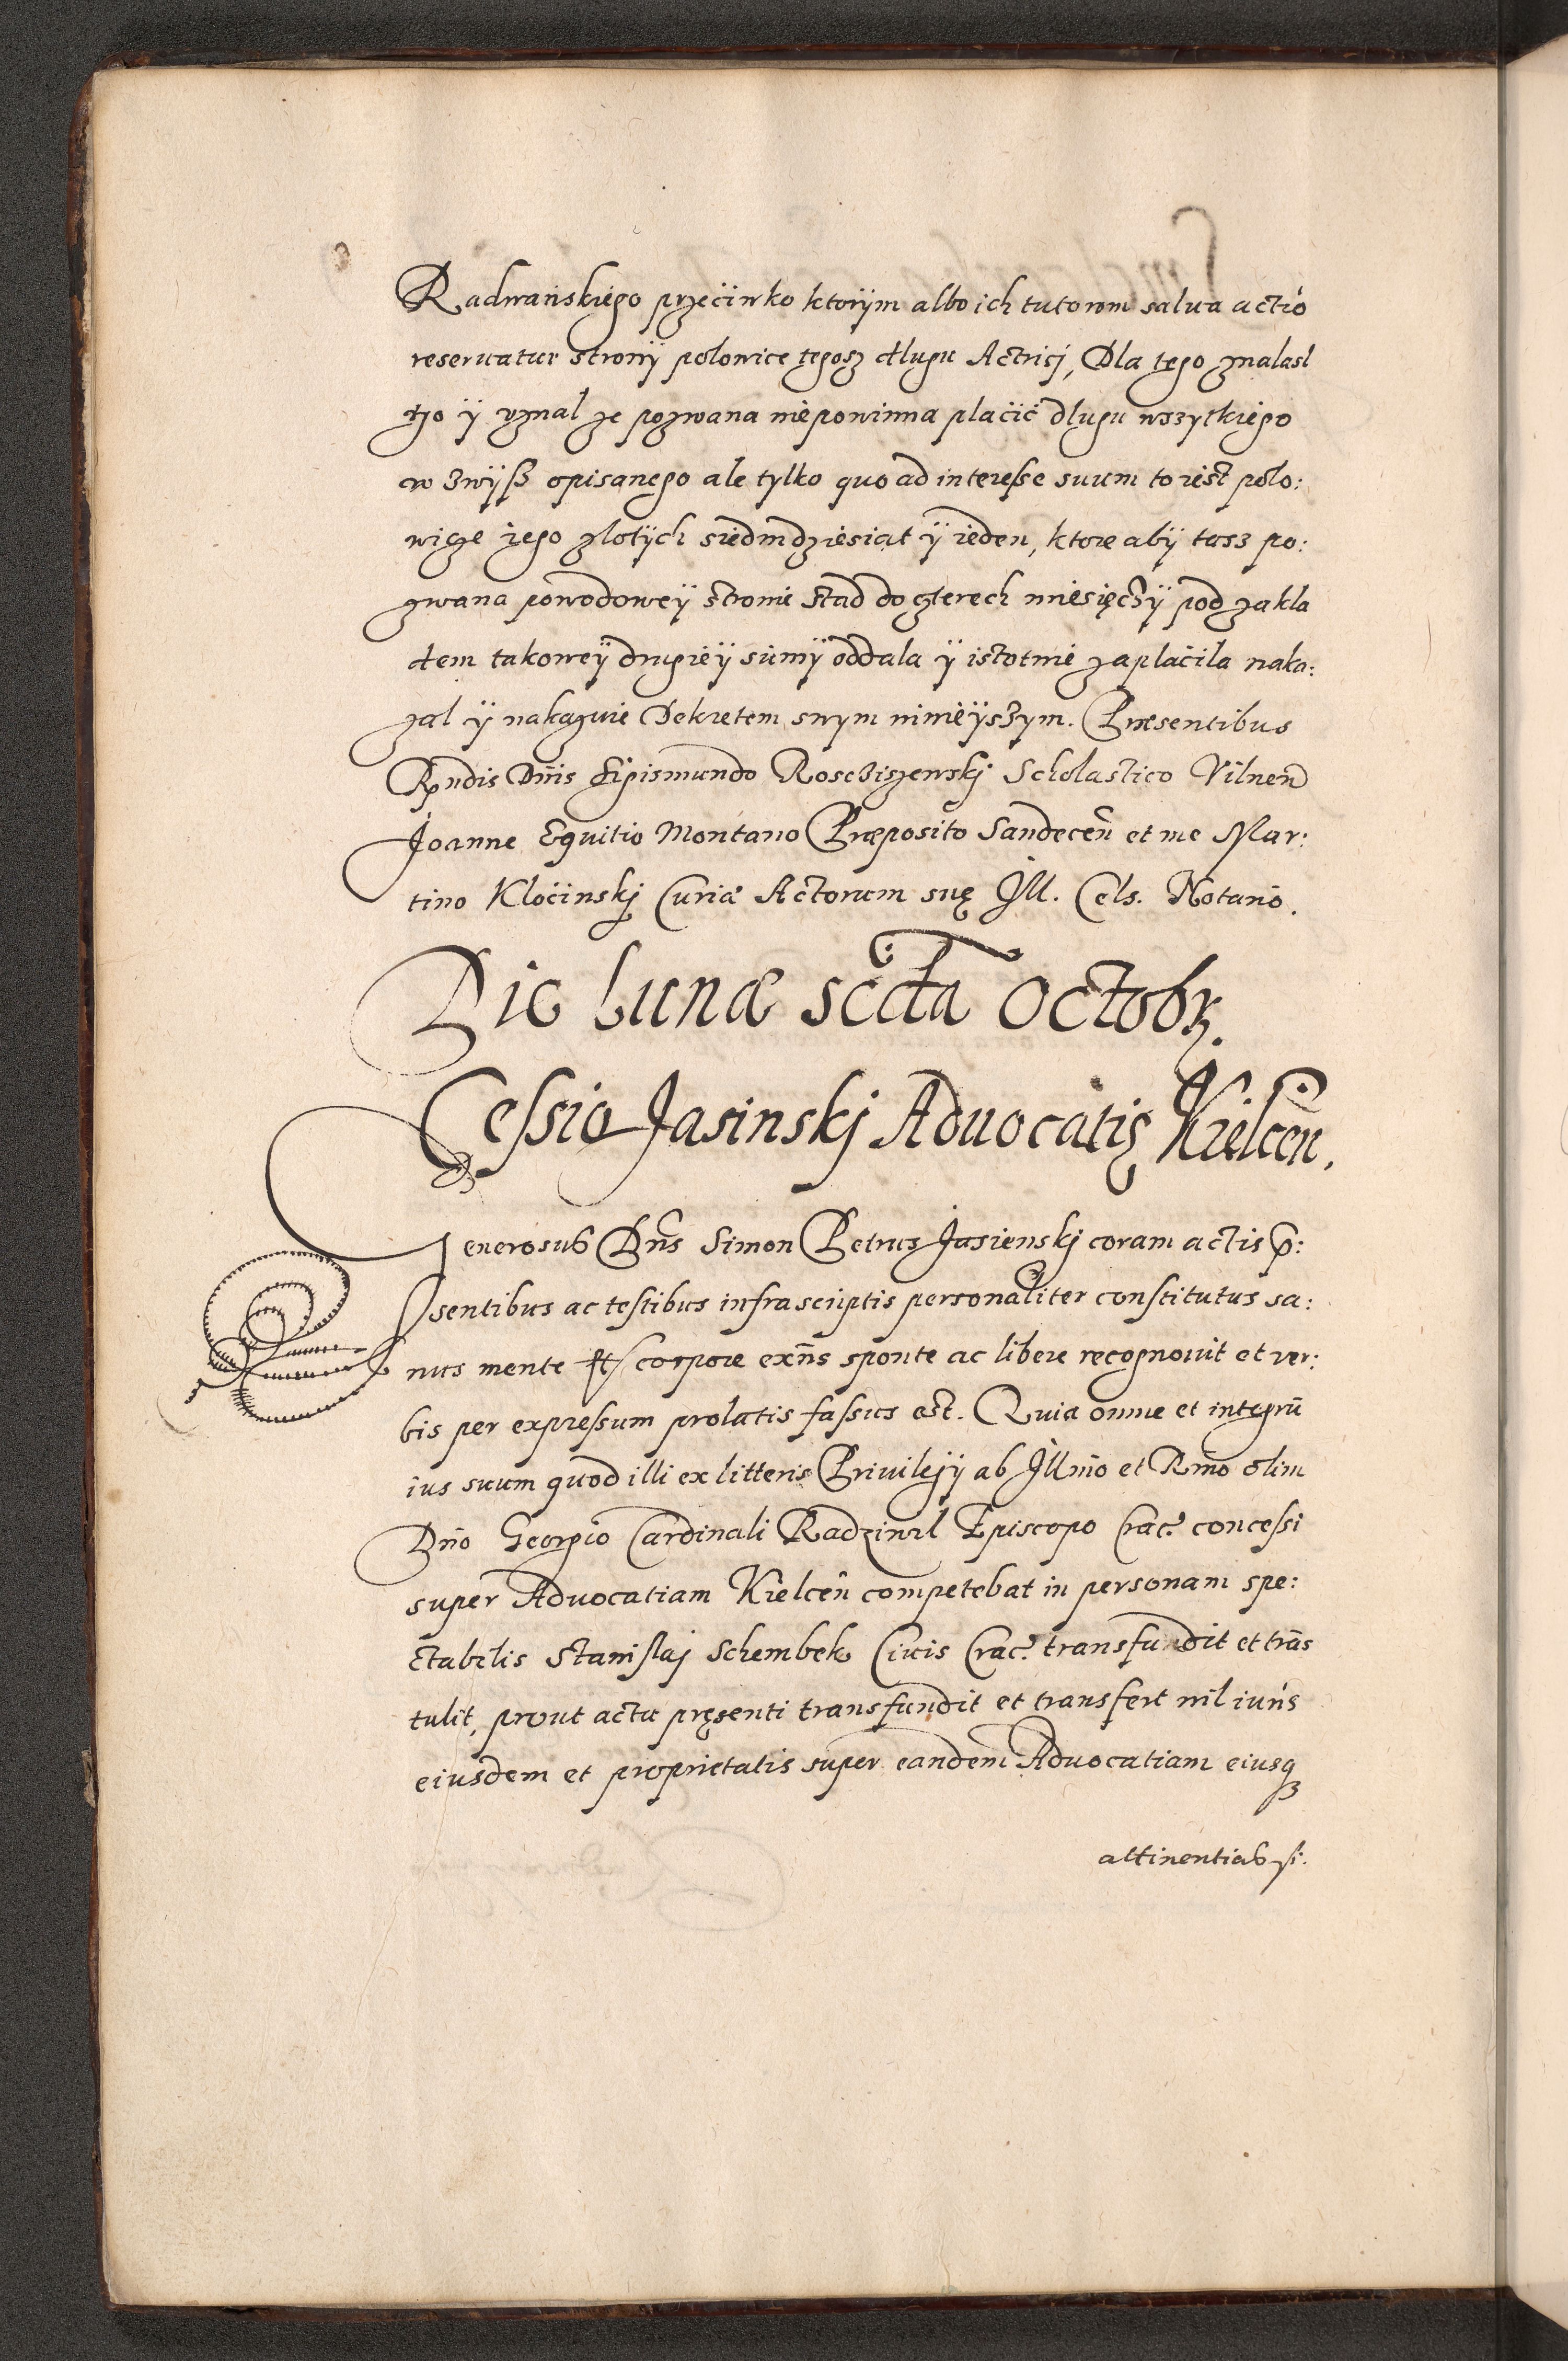 Radwanskiego przećiwko ktorÿm albo ich tutorom salua actio
reseruatur stronÿ polowice tegosz dlugu Actricj, Dla tego znalasl
tzo ÿ vznal ze pozwana niepowinna placić dlugu wszytkiego
w zwÿsz opisanego ale tylko quo ad interesse suum to iest polo:
wicze iego zlotÿch siedmdziesiat ÿ ieden, ktore abÿ tasz po:
zwana powodoweÿ stronie stad do czterech miesięczÿ pod zakla
dem takoweÿ drugieÿ sumÿ oddala ÿ istotnie zaplaćila naka:
zal ÿ nakazuie Dekretem swym ninieÿszym. Præsentibus
Rndis Dnis Sigismundo Rosczisewskj Scholastico Vilnen
Joanne Equitio Montano Præposito Sandecen et me Mar:
tino Kloćinskj Curiæ Actorum suę Ill. Cels. Notario.
Die Lunæ scda Octobr.
Cessio Jasinskj Aduocatiæ Kielcen.
Generosus Dns Simon Petrus Jasienskj coram actis p:
sentibus ac testibus infrascriptis personaliter constitutus sa:
nus mente et corpore exns sponte ac libere recognouit et ver:
bis per expressum prolatis fassus est. Quia omne et integrū
ius suum quod illi ex litteris Priuilegÿ ab Illmo et Rmo olim
Dno Georgio Cardinali Radziwil Episcopo Crac. concessi
super Aduocatiam Kielcen competebat in personam spe:
ctabilis Stanislaj Schembek Ciuis Crac. transfundit et trās
tulit, prout actu pręsenti transfundit et transfert nil iuris
eiusdem et proprietatis super eandem Aduocatiam eiusq
attinentias si.